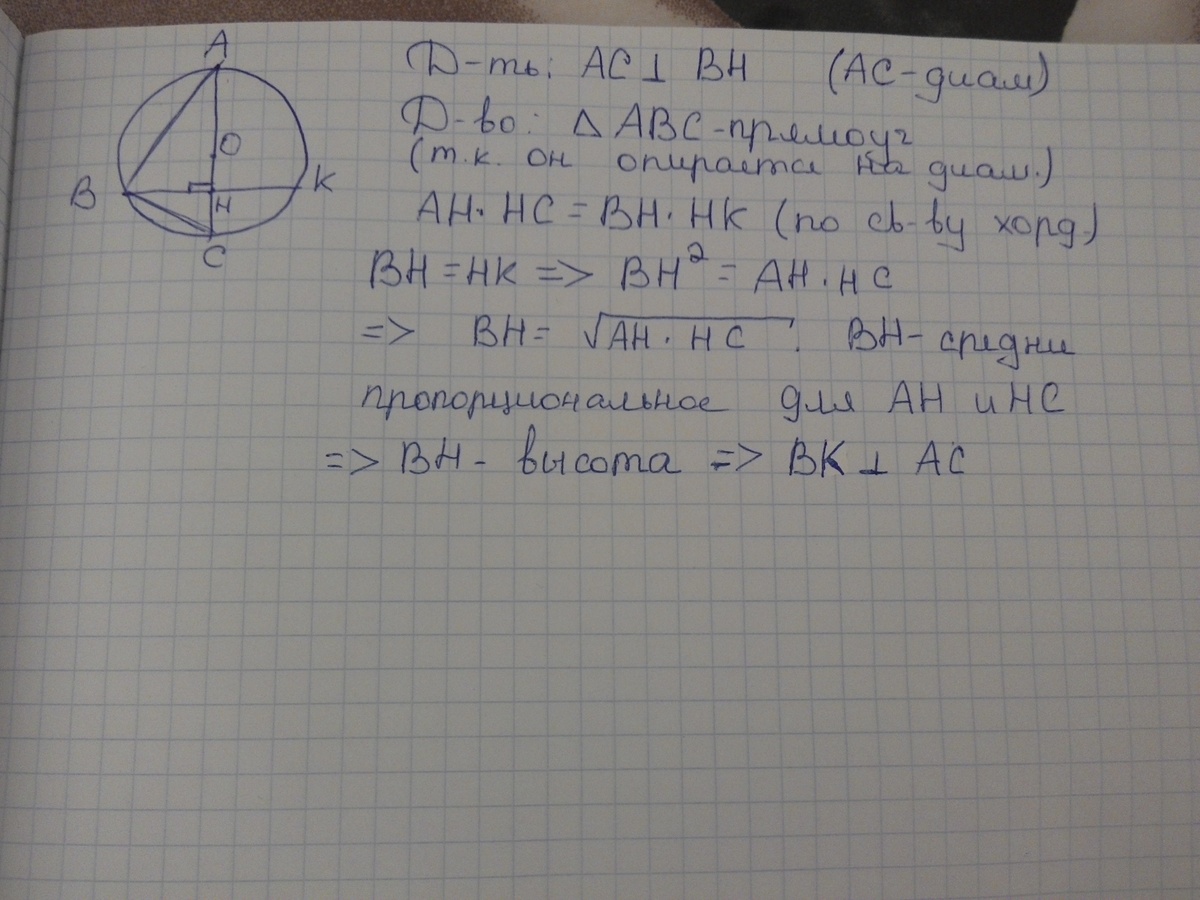 A
O
B
K
H
C
Д-ть: AC ⊥ BH (AC-диам)
Д-во: △ ABC-прямоуг
(т.к. он опирается на диам.)
AH · HC = BH · HK (по св-ву хорд)
BH = HK => BH² = AH · HC
=> BH = √AH · HC . BH - средни
пропорциональное для AH и HC
=> BH - высота => BK ⊥ AC